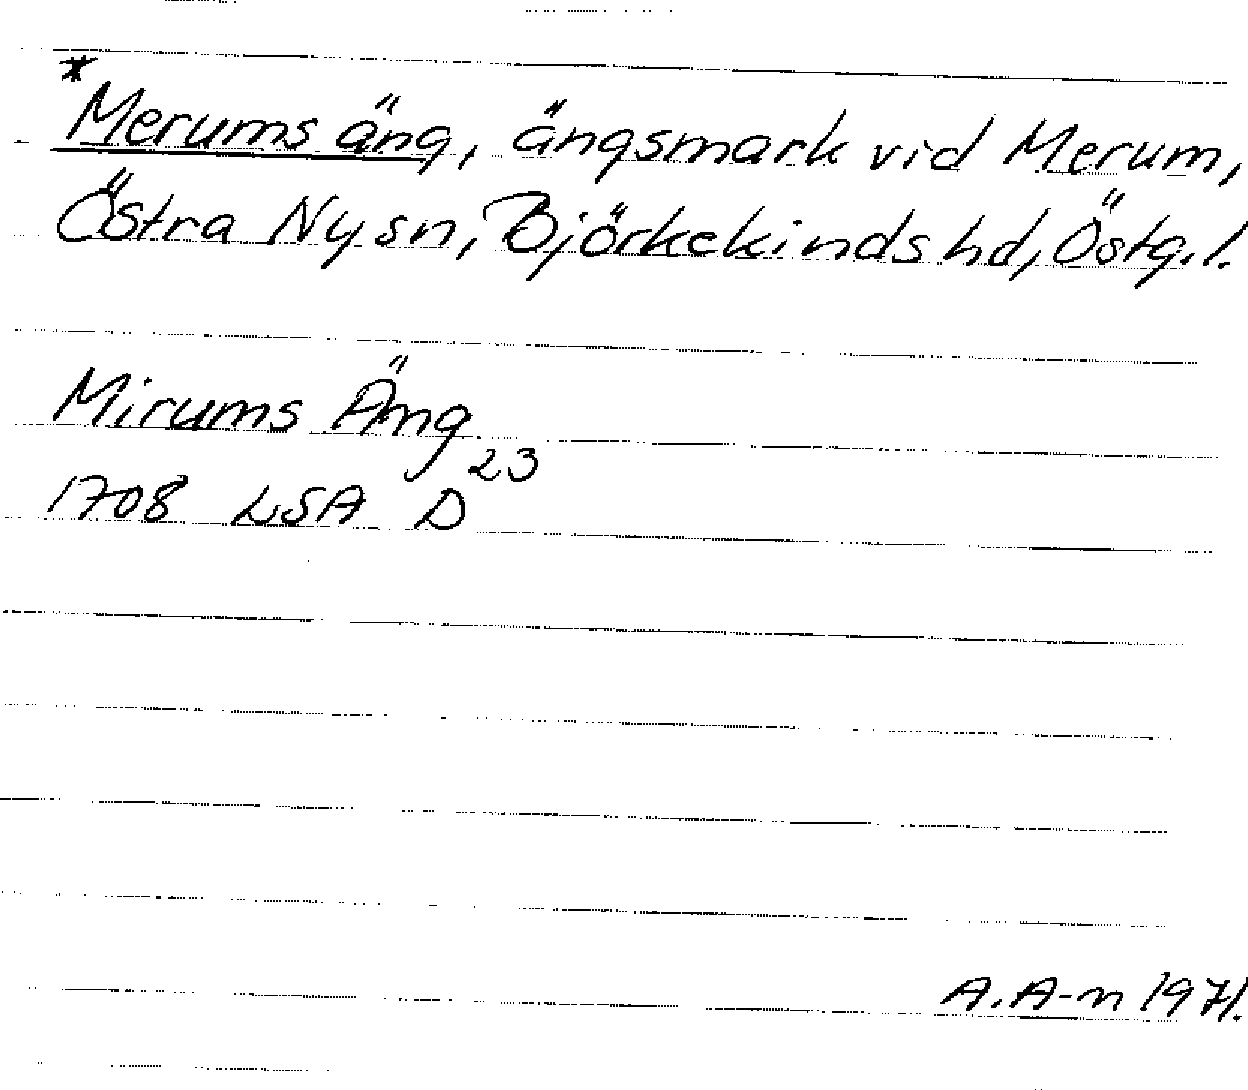 *Merums äng, ängsmark vid Merum,
Östra Ny sn, Björkekinds hd, Östg.l.
Mirums Äng
1708 LSA D23
A.A-n 1971.